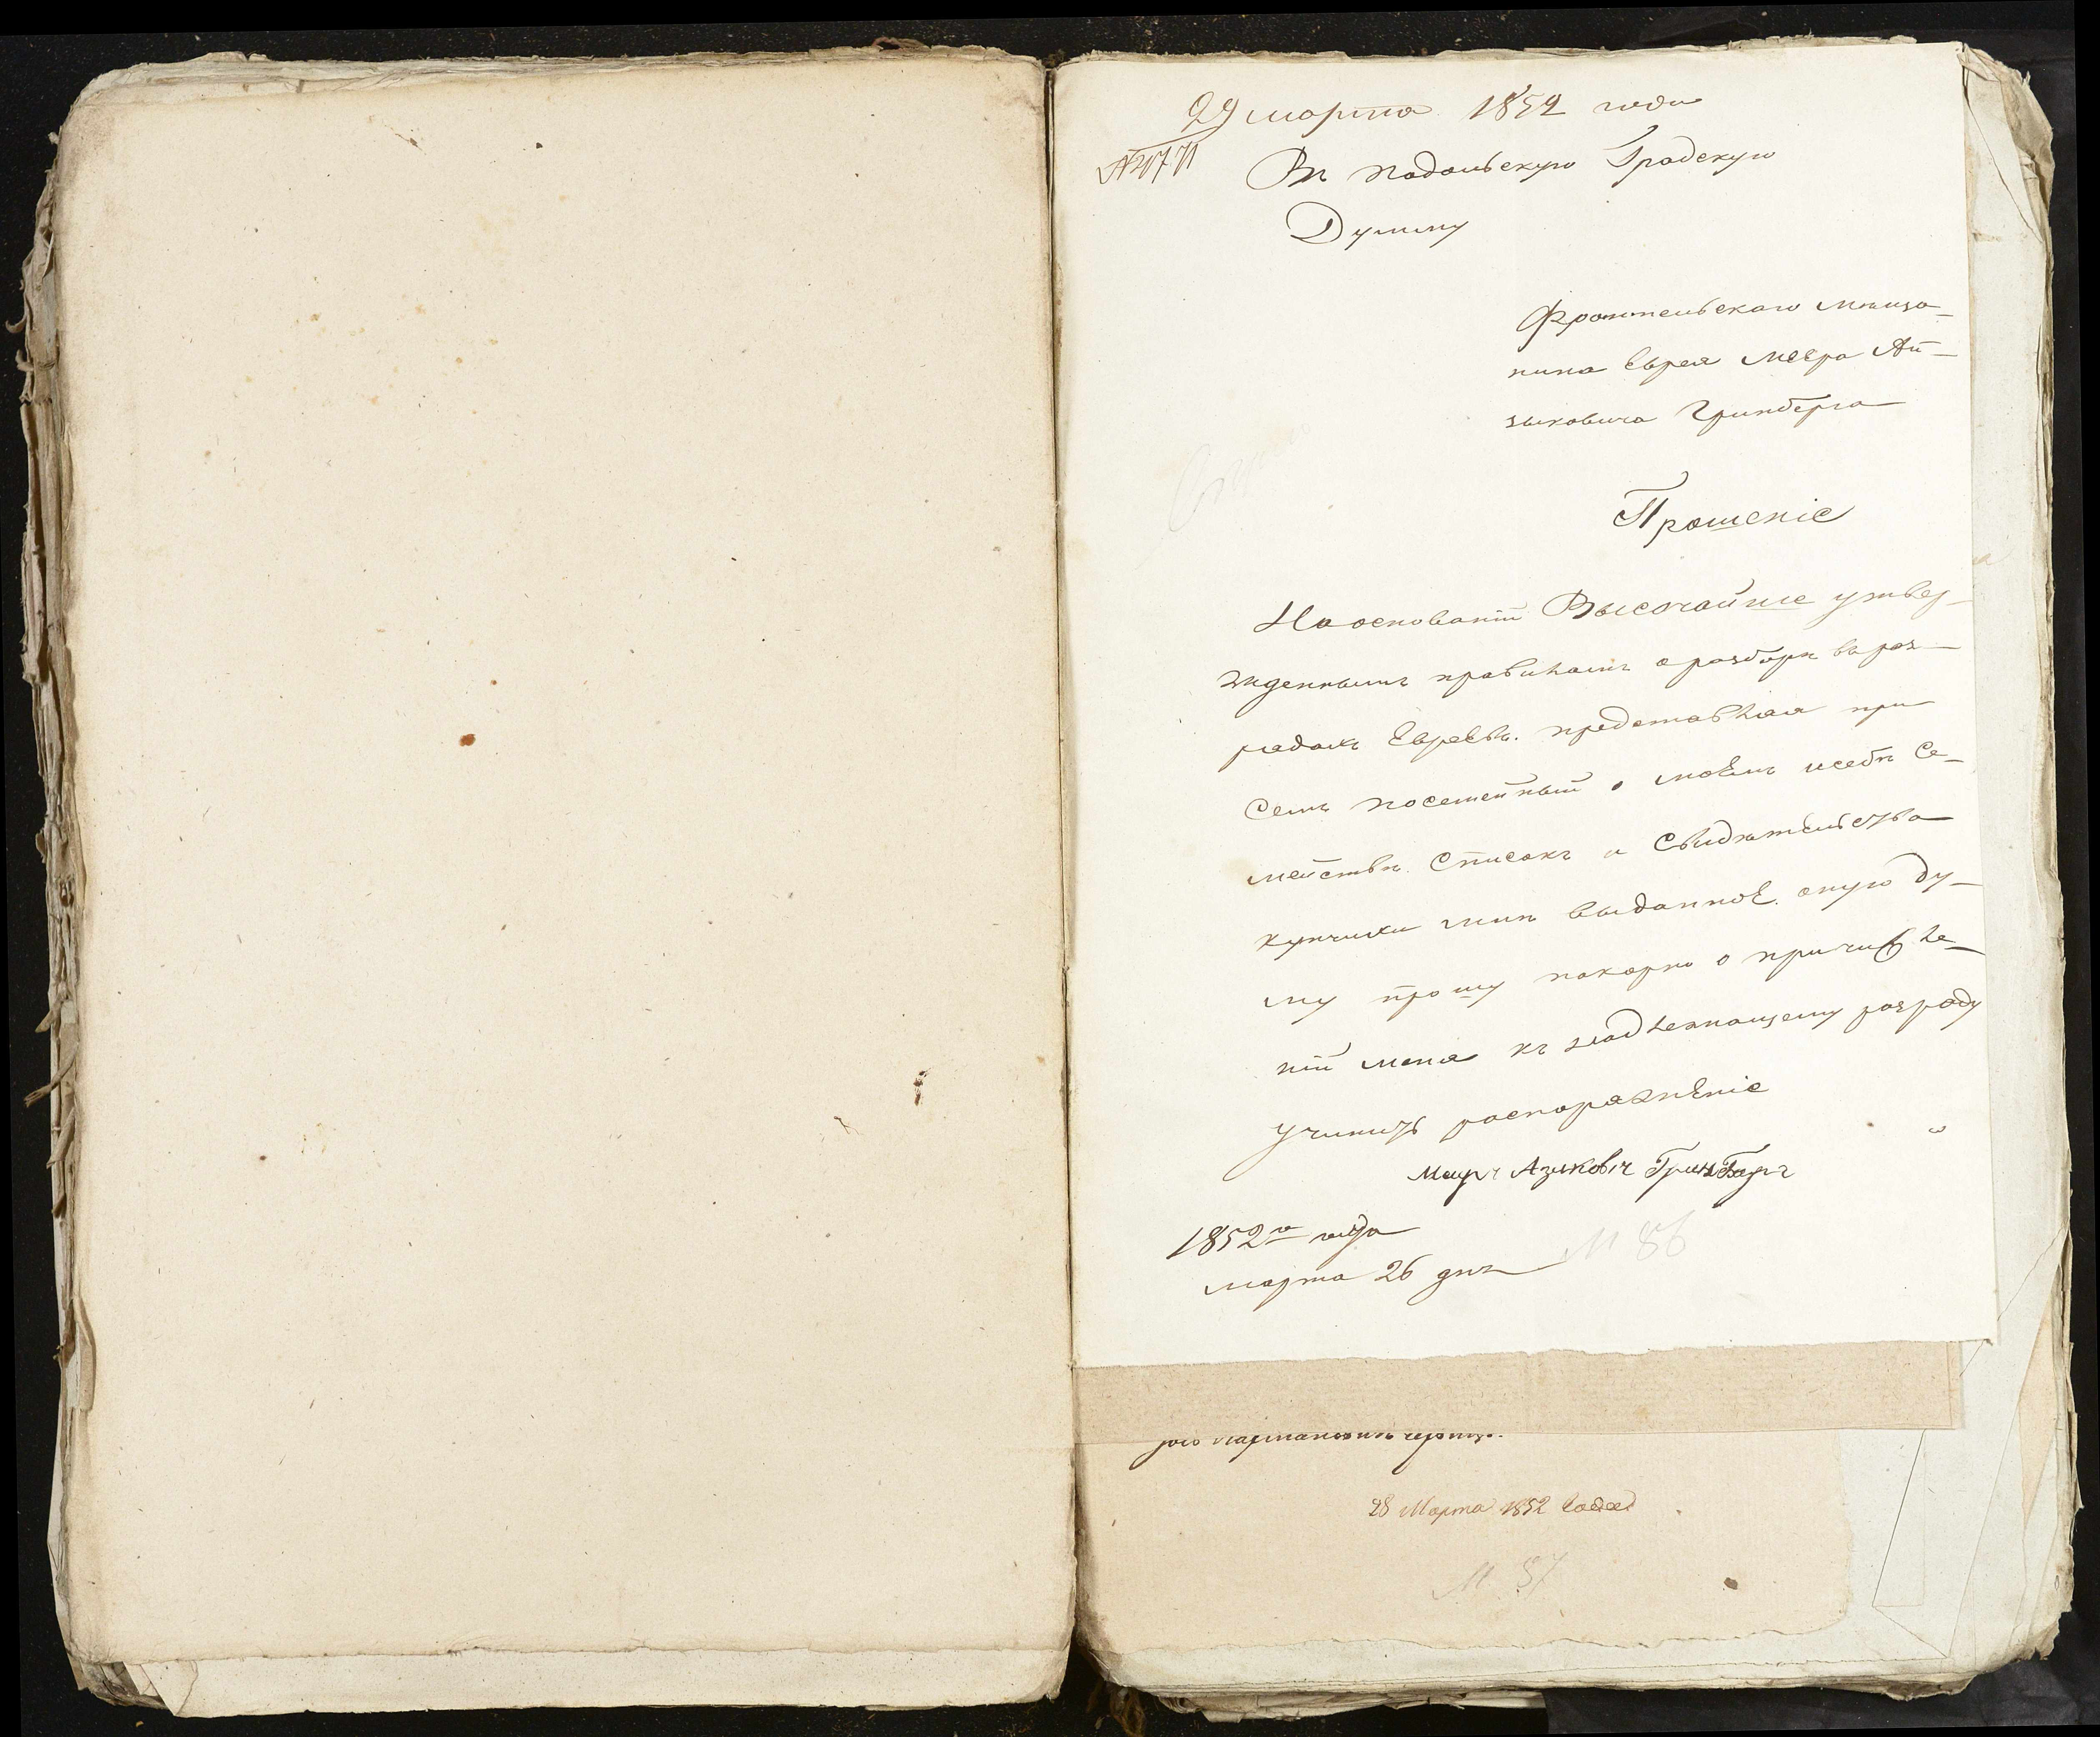 29 марта 1852 года
Въ Подольскую Градскую
Думму
мѣща-
нина Еврея Меера Ай-
зиковича Гринберга
Прошеніе
На основаніи Высочайше утвер-
жденнымъ правиламъ о разборѣ въ раз-
рядахъ Евреевъ. представляя при
семъ посемейный о моемъ и себѣ Се-
мействѣ Списокъ и Свидѣтельства
мнѣ выданное. оную Ду-
му прошу покорно о причисле-
ніи меня къ надлежащему разряду
учинить распоряженіе
Меиръ Азиковіч Гринбергъ
1852го года
марта 26 дня
№ 86
28 Марта 1852 года
№ 87